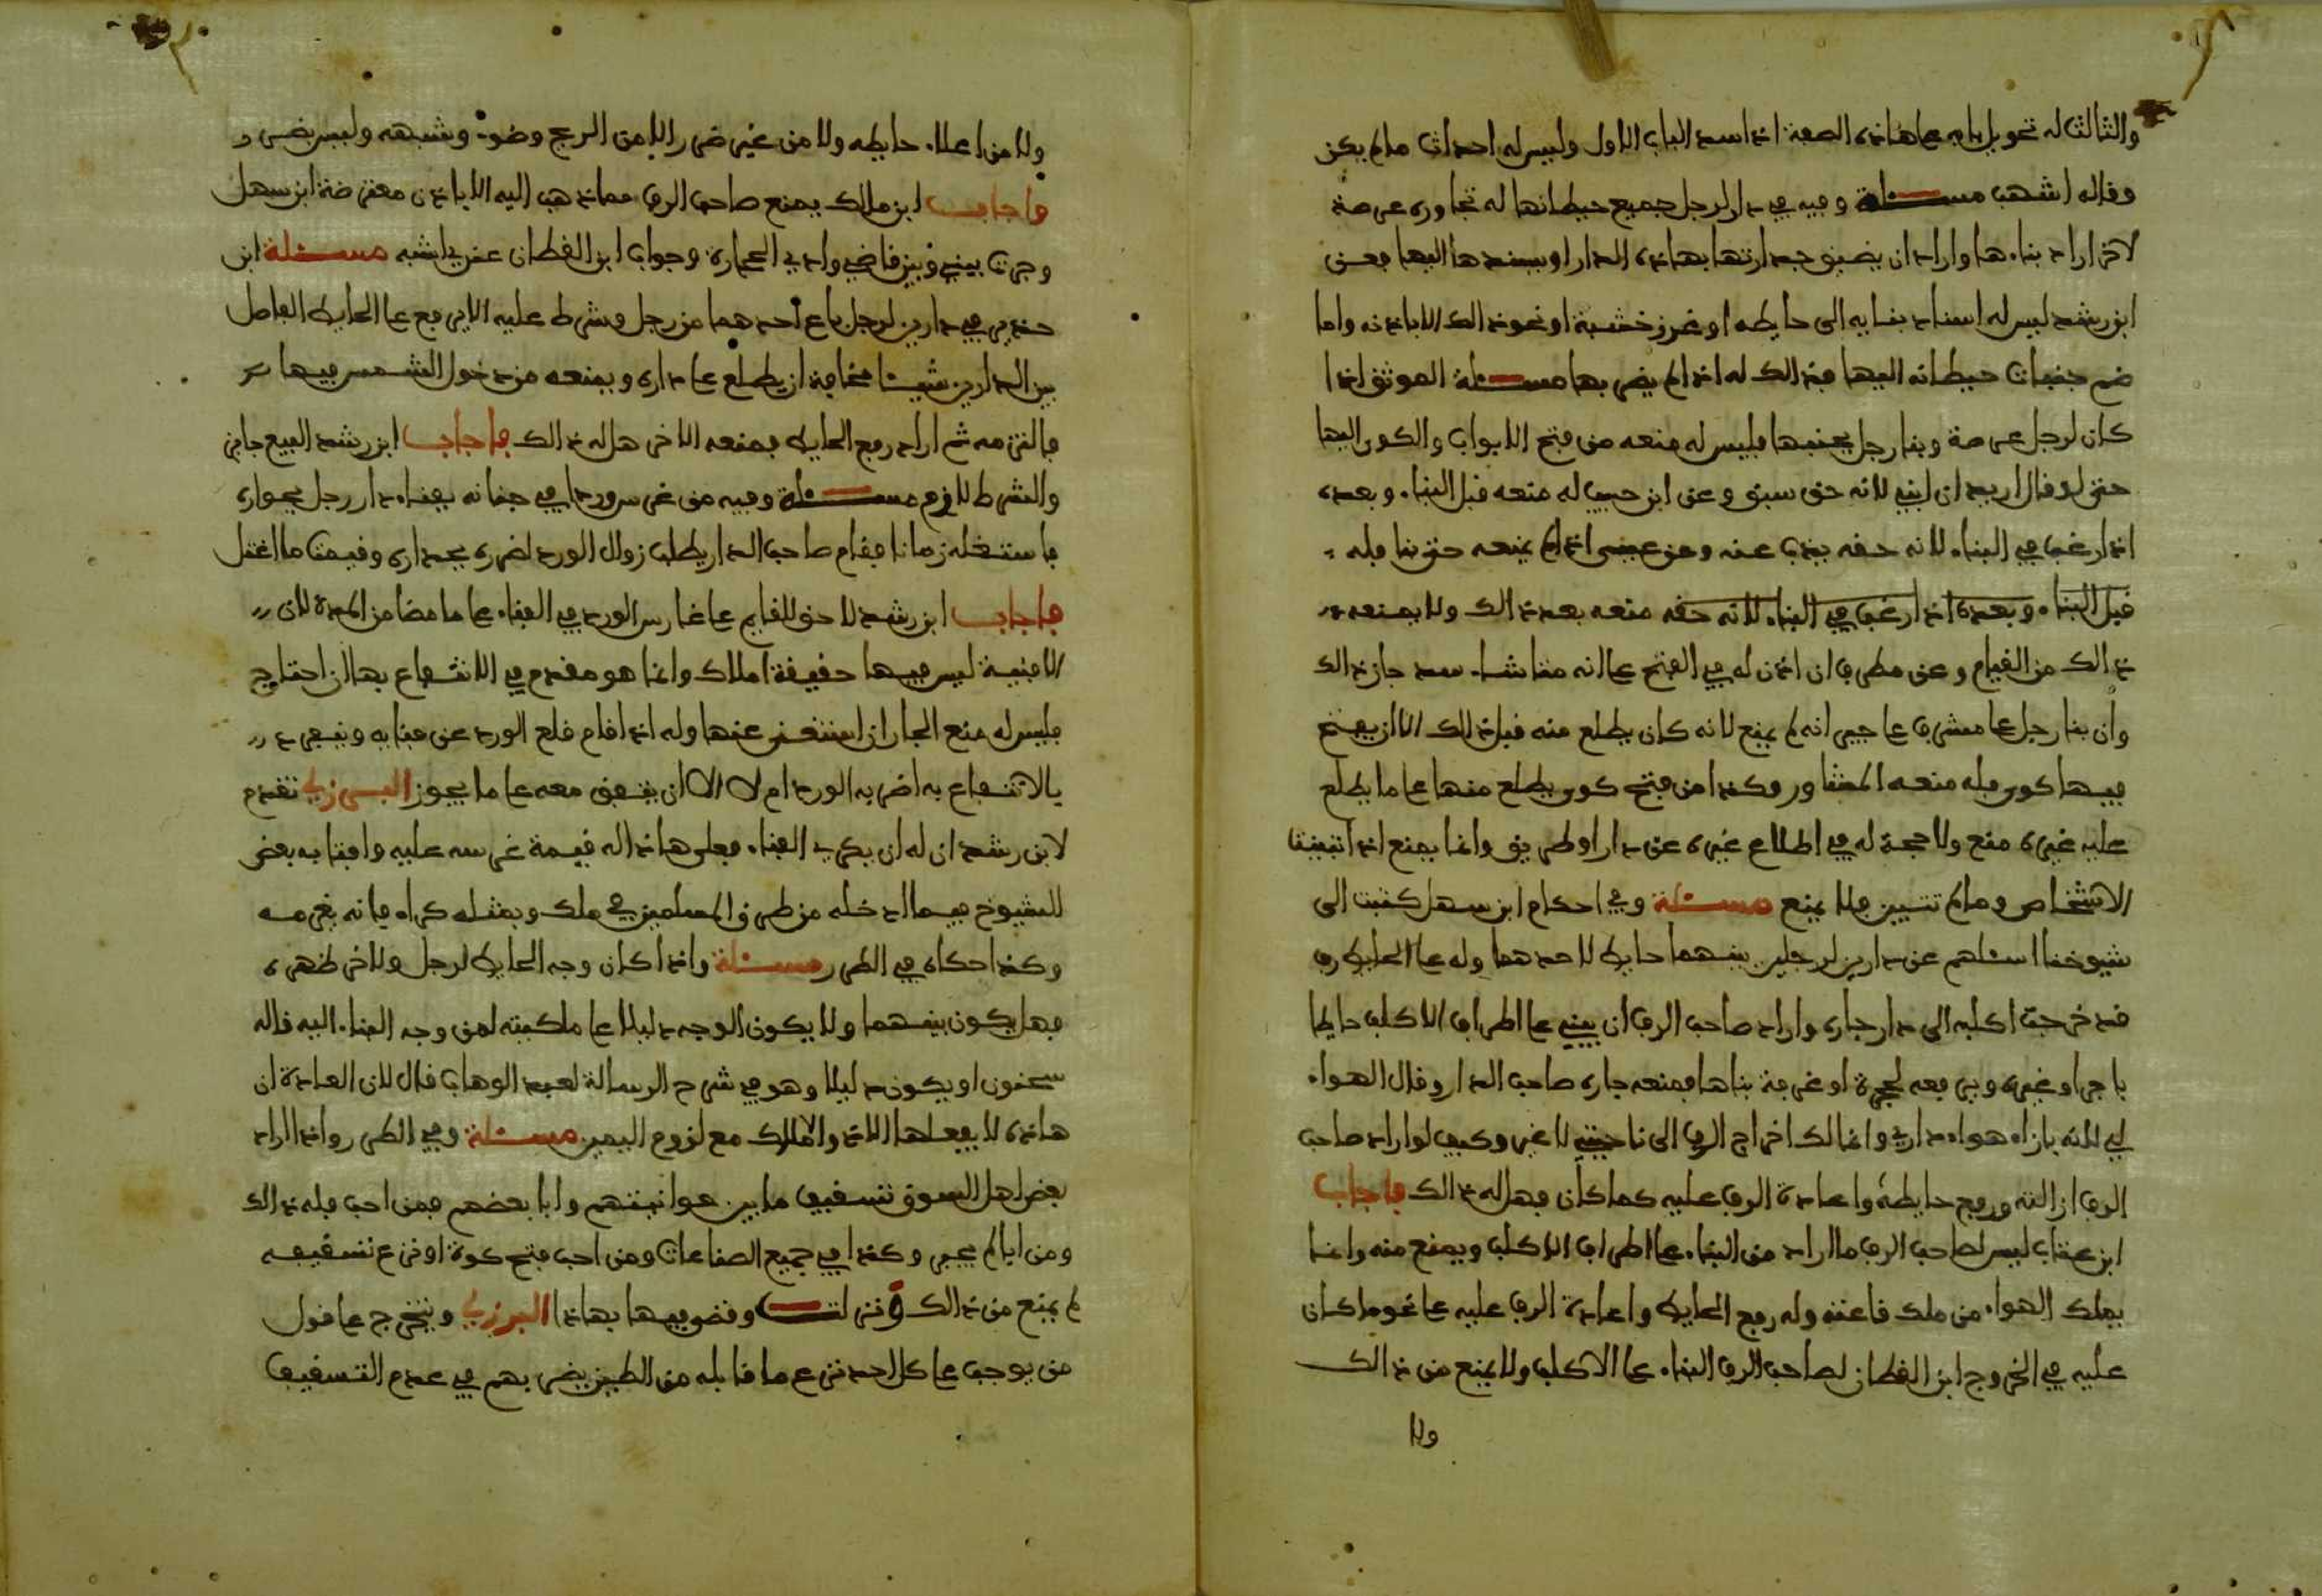 والثالث له تحويل بابه على هاذه الصفة اذا سد الباب الاول وليس له احداث ما لم يكن
وقاله اشهب مسئلة وفيه في دار لرجل جميع حيطانها له تجاوره عرصة
لاخر اراد بناءها واراد ان يضيف جدارتها بهاذه الدار او يسندها اليها فعن
ابن رشد ليس له اسناد بنايه الى حايطه او غرز خشبة او نحو ذالك الا باذنه واما
ضم جنبات حيطانه اليها فذالك له اذا لم يضر بها مسئلة الموثق اذا
كان لرجل عرصة وبنا رجل بجنبها فليس له منعه من فتح الابواب والكوى اليها
حتى لو قال اريد ان ابني لانه حق سبق وعن ابن حبيب له منعه قبل البناء وبعده
اذا رغب في البناء لانه حقه يذب عنه وعن عيسى اذا لم يمنعه حتى بنا فله
قبل البناء وبعده اذا رغب في البناء لانه حقه منعه بعد ذالك ولا يمنعه
ذالك من القيام وعن مطرف ان اذن له في الفتح على انه متا شاء سد جاز ذالك
وان بنا رجل على مشرف على جيرانه لم يمنع لانه كان يطلع منه قبل ذالك الا ان يفتح
فيها كوى فله منعه المشاور وكذا من فتح كوى يطلع منها على ما يطلع
عليه غيره منع ولا حجة له في اطلاع غيره عن دار او طريق وانما يمنع اذا تبينت
الاشخاص وما لم تتبين فلا يمنع مسئلة وفي احكام ابن سهل كتبت الى
شيوخنا اسئلهم عن دارين لرجلين بينهما حايط لاحدهما وله على الحايط رف
قد خرجت اكلبه الى دار جاره واراد صاحب الرف ان يبني على اطراف الاكلب حايطا
باجر او غيره ويرفعه لحجرة او غرفة بناها فمنعه جاره صاحب الدار وقال الهواء
لي لانه بازاء هواء داري وانما لك اخراج الرف الى ناحيتي لا غير وكيف لو اراد صاحب
الرف ازالته ورفع حايطه واعادة الرف عليه كما كان فهل له ذالك فاجاب
ابن عتاب ليس لصاحب الرف ما اراد من البناء على اطراف الاكلب ويمنع منه وانما
يملك الهواء من ملك قاعته وله رفع الحايط واعادة الرف عليه على نحو ما كان
عليه في الخروج ابن القطان لصاحب الرف البناء على الاكلب ولا يمنع من ذالك
ولا
ولا من اعلاء حايطه ولا من غير ضرر الا من الريح وضوء وشبهه وليس بضرر
واجاب ابن مالك يمنع صاحب الرف مما ذهب اليه الا باذن معترضة ابن سهل
وجرت بيني وبين قاضي وادي الحجارة وجواب ابن القطان عندي اشبه مسئلة ابن
حذير في دارين لرجل باع احدهما من رجل وشرط عليه الا يرفع على الحايط الفاصل
بين الدارين شيئا مخافة ان يطلع على داره ويمنعه من دخول الشمس فيها
فالتزمه ثم اراد رفع الحايط فمنعه الاخر هل له ذالك فاجاب ابن رشد البيع جايز
والشرط لازم مسئلة وفيه من غرس وردا في جنانه بفناء دار رجل بجواره
فاستغله زمانا فقام صاحب الدار يطلب زوال الورد لضرره بجداره وقيمة ما اغتل
فاجاب ابن رشد لا حق للقايم على غارس الورد في الفناء على ما مضا من المدة لان
الافنية ليس فيها حقيقة املاك وانما هو مقدم في الانتفاع بها ان احتاج
فليس له منع الجار ان استغنى عنها وله اذا قام قلع الورد عن فنايه وينفرد
بالانتفاع به اضر به الورد ام لا الا ان يتفق معه على ما يجوز البرزلي تقدم
لابن رشد ان له ان يكري الفناء فعلى هاذا له قيمة غرسه عليه وافتا به بعض
الشيوخ فيما ادخله من طرق المسلمين في ملك وبمثله كراء فانه يغرمه
وكذا حكاه في الطرر مسئلة واذا كان وجه الحايط لرجل ولاخر ظهره
فهل يكون بينهما ولا يكون الوجه دليلا على ملكيته لمن وجه البناء اليه قاله
سحنون او يكون دليلا وهو في شرح الرسالة لعبد الوهاب قال لان العادة ان
هاذه لا يفعلها الا ذو الاملاك مع لزوم اليمين مسئلة وفي الطرر واذا اراد
بعض اهل السوق تسقيف ما بين حوانيتهم وابا بعضهم فمن احب فله ذالك
ومن ابا لم يجبر وكذا في جميع الصناعات ومن احب فتح كوة او نزع تسقيفه
لم يمنع من ذالك وقضى فيها بهاذا البرزلي ويتخرج على قول
من يوجب على كل احد نزع ما قابله من الطين يضر بهم في عدم التسقيف